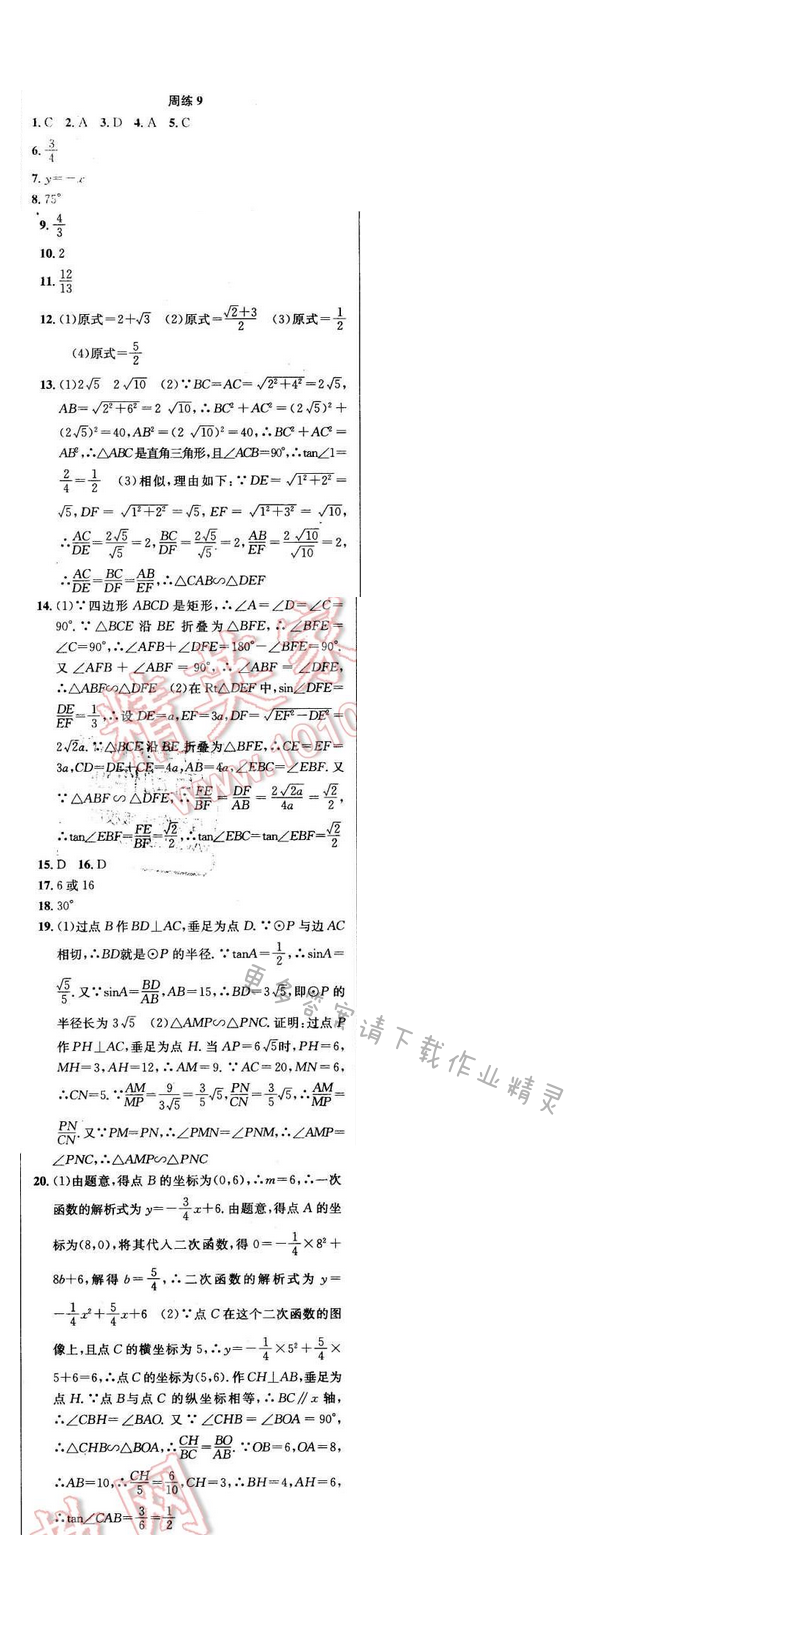 周练 9
1. C 2. A 3. D 4. A 5. C
6. 3/4
7. y=-x
8. 75°
9. 4/3
10. 2
11. 12/13
12. (1)原式=2+√3 (2)原式=(√2+3)/2 (3)原式=1/2
(4)原式=5/2
13. (1)2√5 2√10 (2)∵BC=AC=√(2²+4²)=2√5,
AB=√(2²+6²)=2√10,∴BC²+AC²=(2√5)²+
(2√5)²=40,AB²=(2√10)²=40,∴BC²+AC²=
AB²,∴△ABC是直角三角形,且∠ACB=90°,∴tan∠1=
2/4=1/2 (3)相似,理由如下:∵DE=√(1²+2²)=
√5,DF=√(1²+2²)=√5,EF=√(1²+3²)=√10,
∴AC/DE=2√5/√5=2,BC/DF=2√5/√5=2,AB/EF=2√10/√10=2,
∴AC/DE=BC/DF=AB/EF,∴△CAB∽△DEF
14. (1)∵四边形 ABCD 是矩形,∴∠A=∠D=∠C=
90°.∵△BCE 沿 BE 折叠为△BFE,∴∠BFE=
∠C=90°,∴∠AFB+∠DFE=180°-∠BFE=90°.
又∠AFB+∠ABF=90°,∴∠ABF=∠DFE,
∴△ABF∽△DFE (2)在Rt△DEF中,sin∠DFE=
DE/EF=1/3,∴设DE=a,EF=3a,DF=√(EF²-DE²)=
2√2a.∵△BCE沿BE折叠为△BFE,∴CE=EF=
3a,CD=DE+CE=4a,AB=4a,∠EBC=∠EBF.又
∵△ABF∽△DFE,∴FE/BF=DF/AB=2√2a/4a=√2/2,
∴tan∠EBF=FE/BF=√2/2,∴tan∠EBC=tan∠EBF=√2/2
15. D 16. D
17. 6或16
18. 30°
19. (1)过点B作BD⊥AC,垂足为点D.∵⊙P与边AC
相切,∴BD就是⊙P的半径.∵tanA=1/2,∴sinA=
√5/5.又∵sinA=BD/AB,AB=15,∴BD=3√5,即⊙P的
半径长为3√5 (2)△AMP∽△PNC.证明:过点P
作PH⊥AC,垂足为点H.当AP=6√5时,PH=6,
MH=3,AH=12,∴AM=9.∵AC=20,MN=6,
∴CN=5.∵AM/MP=9/3√5=3/5√5,PN/CN=3/5√5,∴AM/MP=
PN/CN.又∵PM=PN,∴∠PMN=∠PNM,∴∠AMP=
∠PNC,∴△AMP∽△PNC
20. (1)由题意,得点B的坐标为(0,6),∴m=6,∴一次
函数的解析式为y=-3/4x+6.由题意,得点A的坐
标为(8,0),将其代入二次函数,得0=-1/4×8²+
8b+6,解得b=5/4,∴二次函数的解析式为y=
-1/4x²+5/4x+6 (2)∵点C在这个二次函数的图
像上,且点C的横坐标为5,∴y=-1/4×5²+5/4×
5+6=6,∴点C的坐标为(5,6).作CH⊥AB,垂足为
点H.∵点B与点C的纵坐标相等,∴BC∥x轴,
∴∠CBH=∠BAO.又∵∠CHB=∠BOA=90°,
∴△CHB∽△BOA,∴CH/BC=BO/AB.∵OB=6,OA=8,
∴AB=10,∴CH/5=6/10,CH=3,∴BH=4,AH=6,
∴tan∠CAB=3/6=1/2
精英家
www.1010
更多答案请下载作业精灵